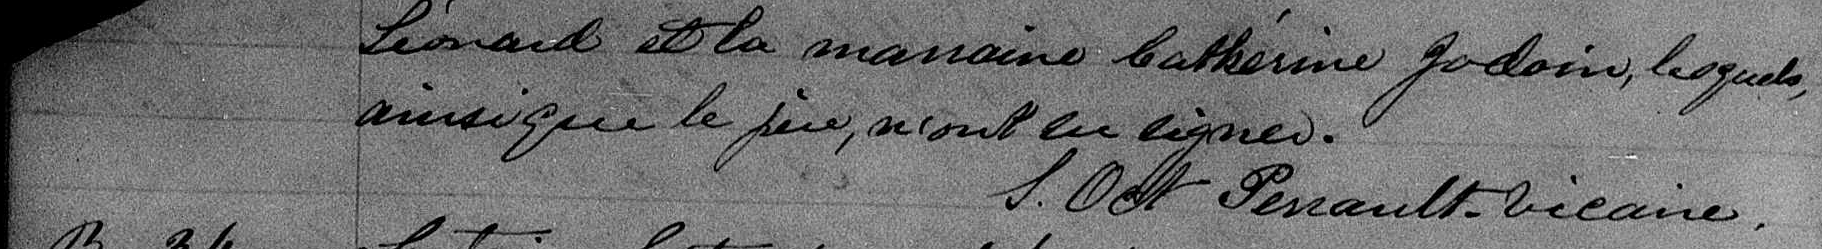 Léonard et la marraine Cathérine Jodoin, lesquels,
ainsi que le père, n'ont su signer.
S. Oct Perrault. Vicaire.
B. 34